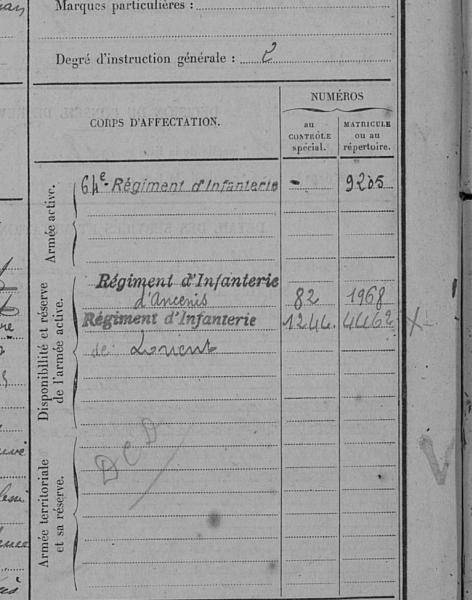 Marques particulières :
Degré d'instruction générale : 2
CORPS D'AFFECTATION.
NUMÉROS
au CONTRÔLE spécial.
MATRICULE ou au répertoire.
Armée active.
64e Régiment d'Infanterie - 9205
Disponibilité et réserve de l'armée active.
Régiment d'Infanterie
d'Ancenis 82 1968
Régiment d'Infanterie 1244. 4462 X
de Lorient
Armée territoriale et sa réserve.
DCD
V